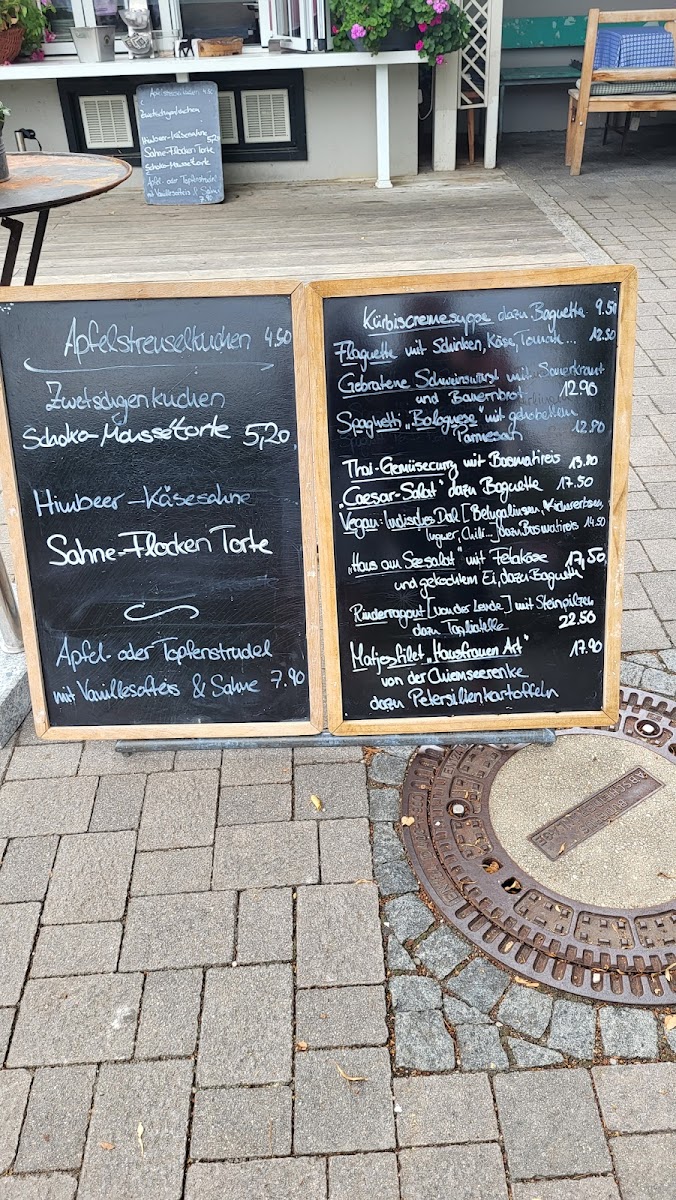 Apfelstreuselkuchen 4.50
Zwetschgenkuchen
Himbeer-Käsesahne 5,20
Sahne-Flocken Torte
Schoko-Mousse torte
Apfel- oder Topfenstrudel
mit Vanillesofteis & Sahne
7.90
Apfelstreuselkuchen 4.50
Zwetschgenkuchen
Schoko-Moussetorte 5,20
Himbeer-Käsesahne
Sahne-Flocken Torte
Apfel- oder Topfenstrudel
mit Vanillesofteis & Sahne 7.90
Kürbiscremesuppe dazu Baguette 9.50
Flaguette mit Schinken, Käse, Tomate...
Gebratene Schweinswurst mit Sauerkraut
und Bauernbrot 12.90
Spaghetti „Bolognese" mit gehobeltem
Parmesan 12.80
Thai-Gemüsecurry mit Basmatireis 13.80
„Caesar-Salat" dazu Baguette 17.50
Vegan: Indisches Dal [Belugalinsen, Kichererbsen,
Ingwer, Chili...] dazu Basmatireis 14.50
„Haus am Seesalat" mit Fetakäse 17,50
und gekochtem Ei, dazu Baguette
Rinderragout [von der Lende] mit Steinpilzen
dazu Tagliatelle 22.50
Matjesfilet „Hausfrauen Art" 17.90
von der Chiemseerenke
dazu Petersilienkartoffeln